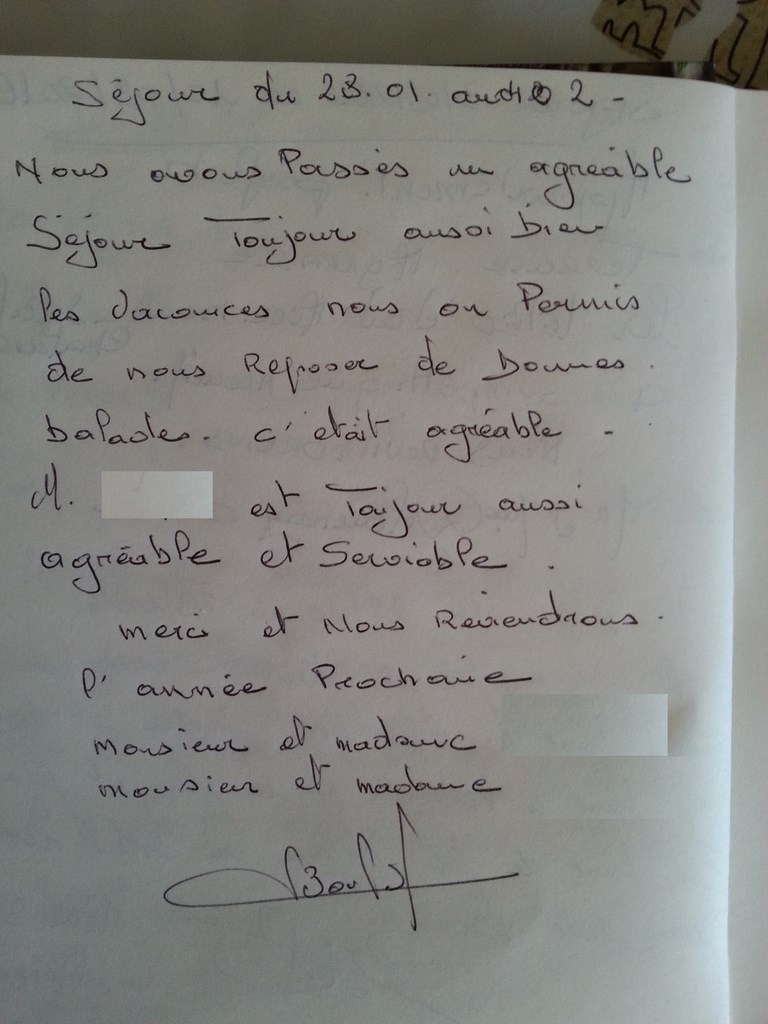 Séjour du 23.01. au 02 -
Nous avons Passés un agréable
Séjour Toujour aussi bien
les vacances nous on Permis
de nous Reposer de Bonnes.
balades. c'etait agréable -
M. est Toujour aussi
agréable et Serviable.
merci et Nous Reviendrons.
l'année Prochaine
monsieur et madame
monsieur et madame